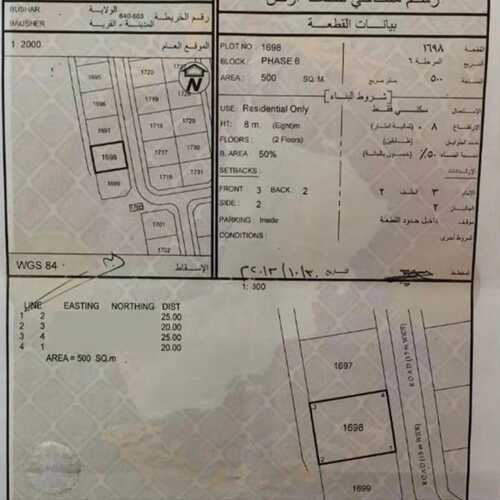 BUSHAR
BAUSHER
الولاية
المدينة - القرية
840-603
رقم الخريطة
1: 2000
الموقع العام
1695
1696
1697
1698
1699
1720
1719
1718
1717
1716
1731
1732
1733
1701
1702
N
WGS 84
الاسقاط
بيانات القطعة
PLOT NO : 1698
١٦٩٨
القطعة
BLOCK : PHASE 6
المرحلة ٦
المربع
AREA : 500 SQ. M.
٥٠٠
متر مربع
المساحة
شروط البناء
USE: Residential Only
سكني فقط
الاستعمال
HT: 8 m. (Eight)m
٨ (ثمانية امتار)
الارتفاع
FLOORS : (2 Floors)
(طابقين)
عدد الطوابق
B. AREA 50%
٥٠٪ (خمسون بالمائة)
مساحة البناء
SETBACKS :
الارتدادات
FRONT 3 BACK : 2
الامام ٣ الخلف ٢
SIDE : 2
الجانبان ٢
PARKING : Inside
داخل حدود القطعة
مواقف
CONDITIONS :
شروط اخرى
٢٠١٣/١٠/٢٠
التاريخ
المخطط
1: 500
LINE EASTING NORTHING DIST
1 2 25.00
2 3 20.00
3 4 25.00
4 1 20.00
AREA = 500 SQ.m
1697
1698
1699
1
2
3
4
ROAD (15 m WIDE)
ROAD (15 m WIDE)